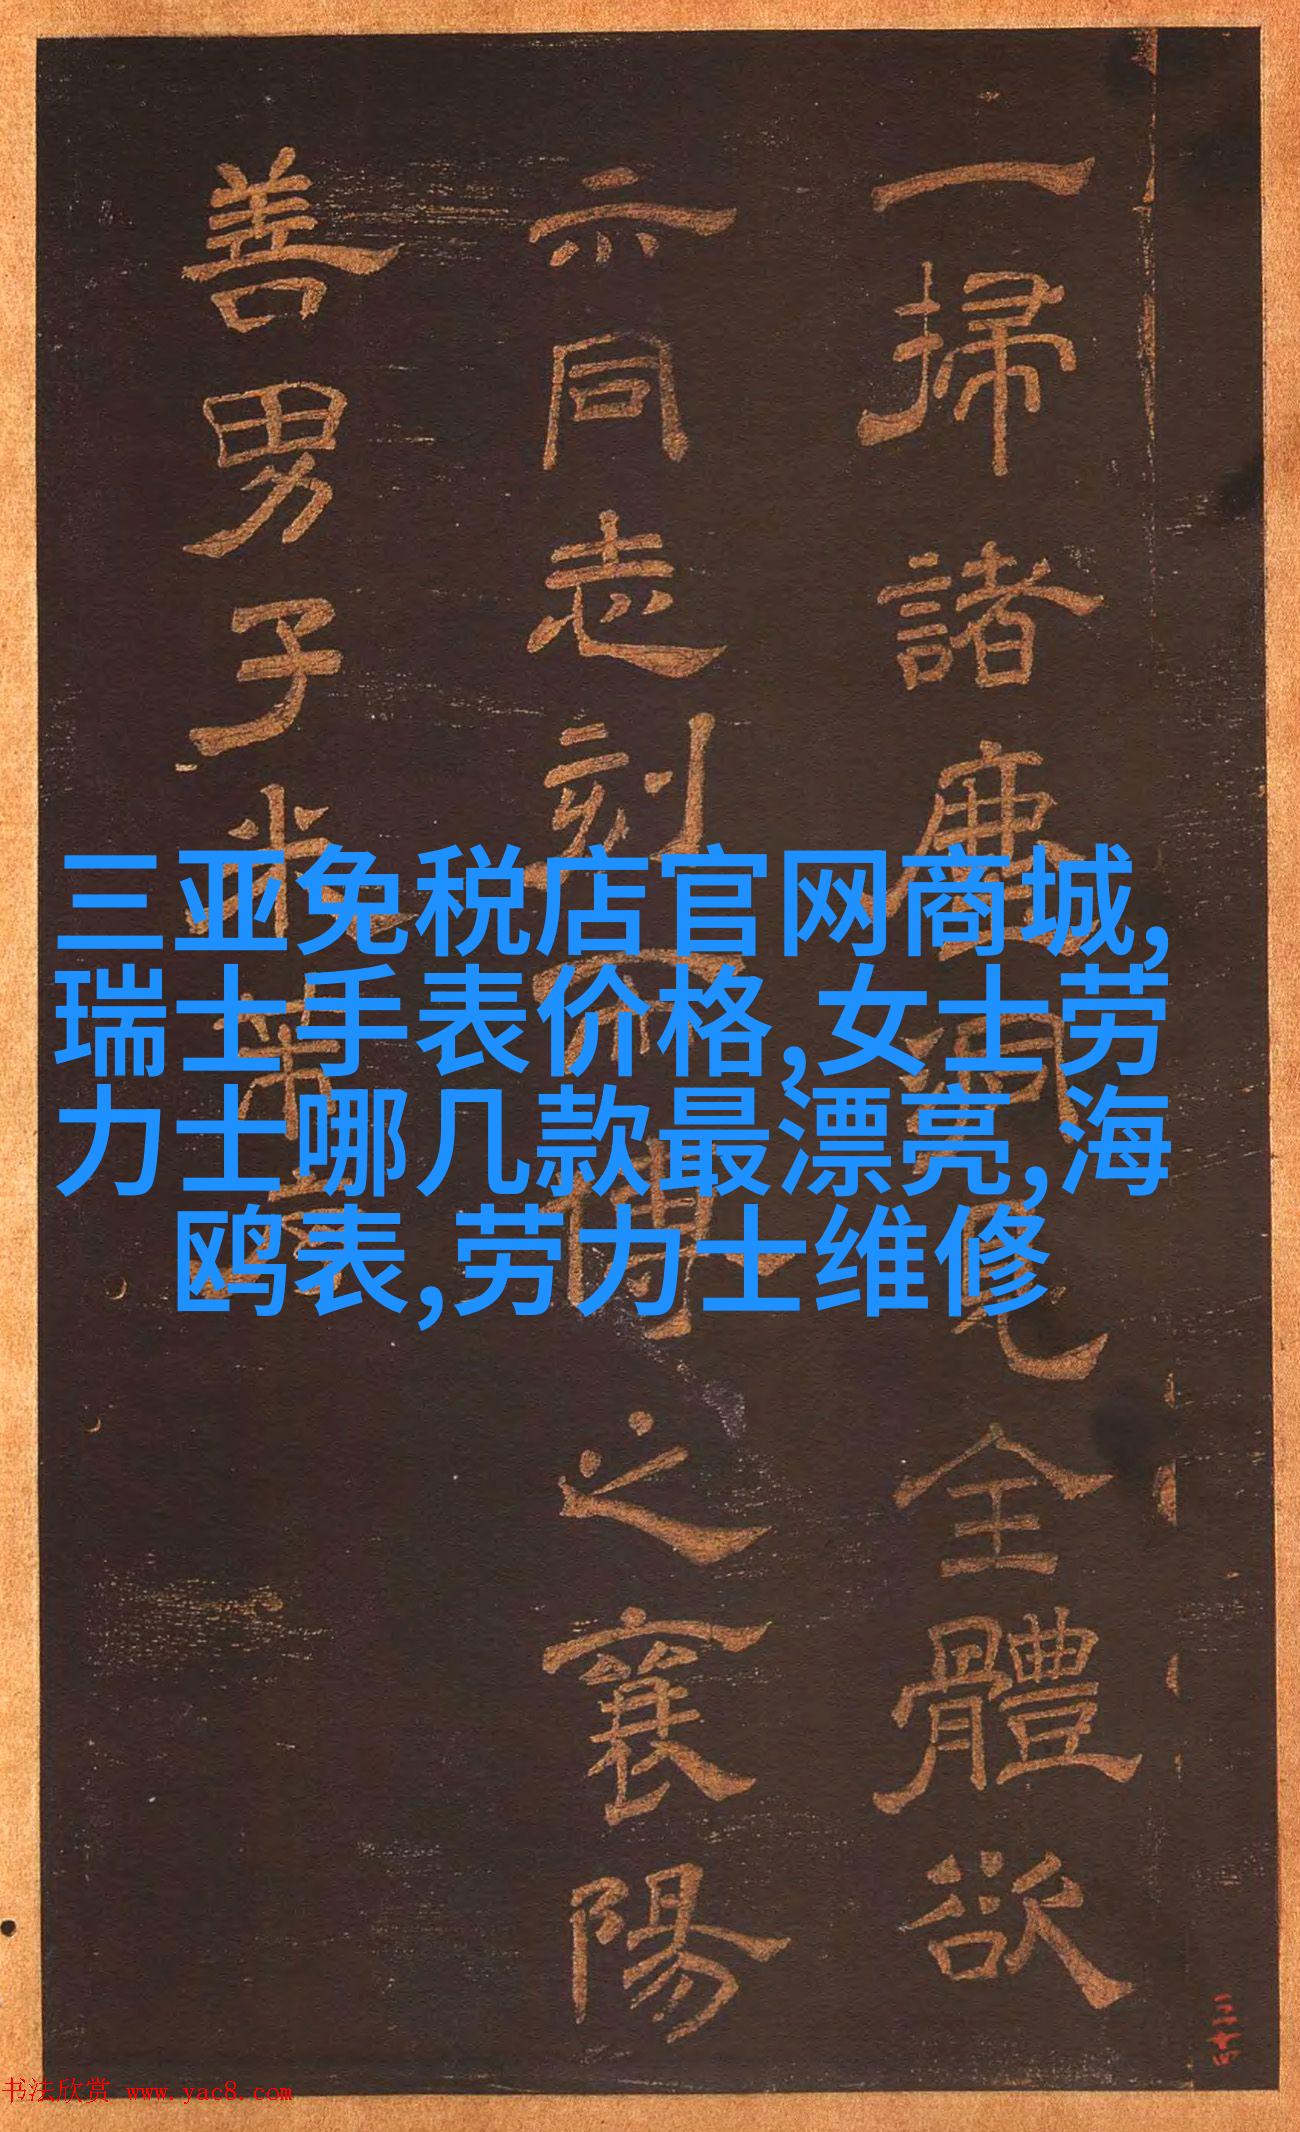 一掃諸廉洞見全體欲
示同志刻而傅之襄陽
善男子米芾書
三亚免税店官网商城,
瑞士手表价格,女士劳
力士哪几款最漂亮,海
鸥表,劳力士维修
三十四
书法欣赏 www.yac8.com